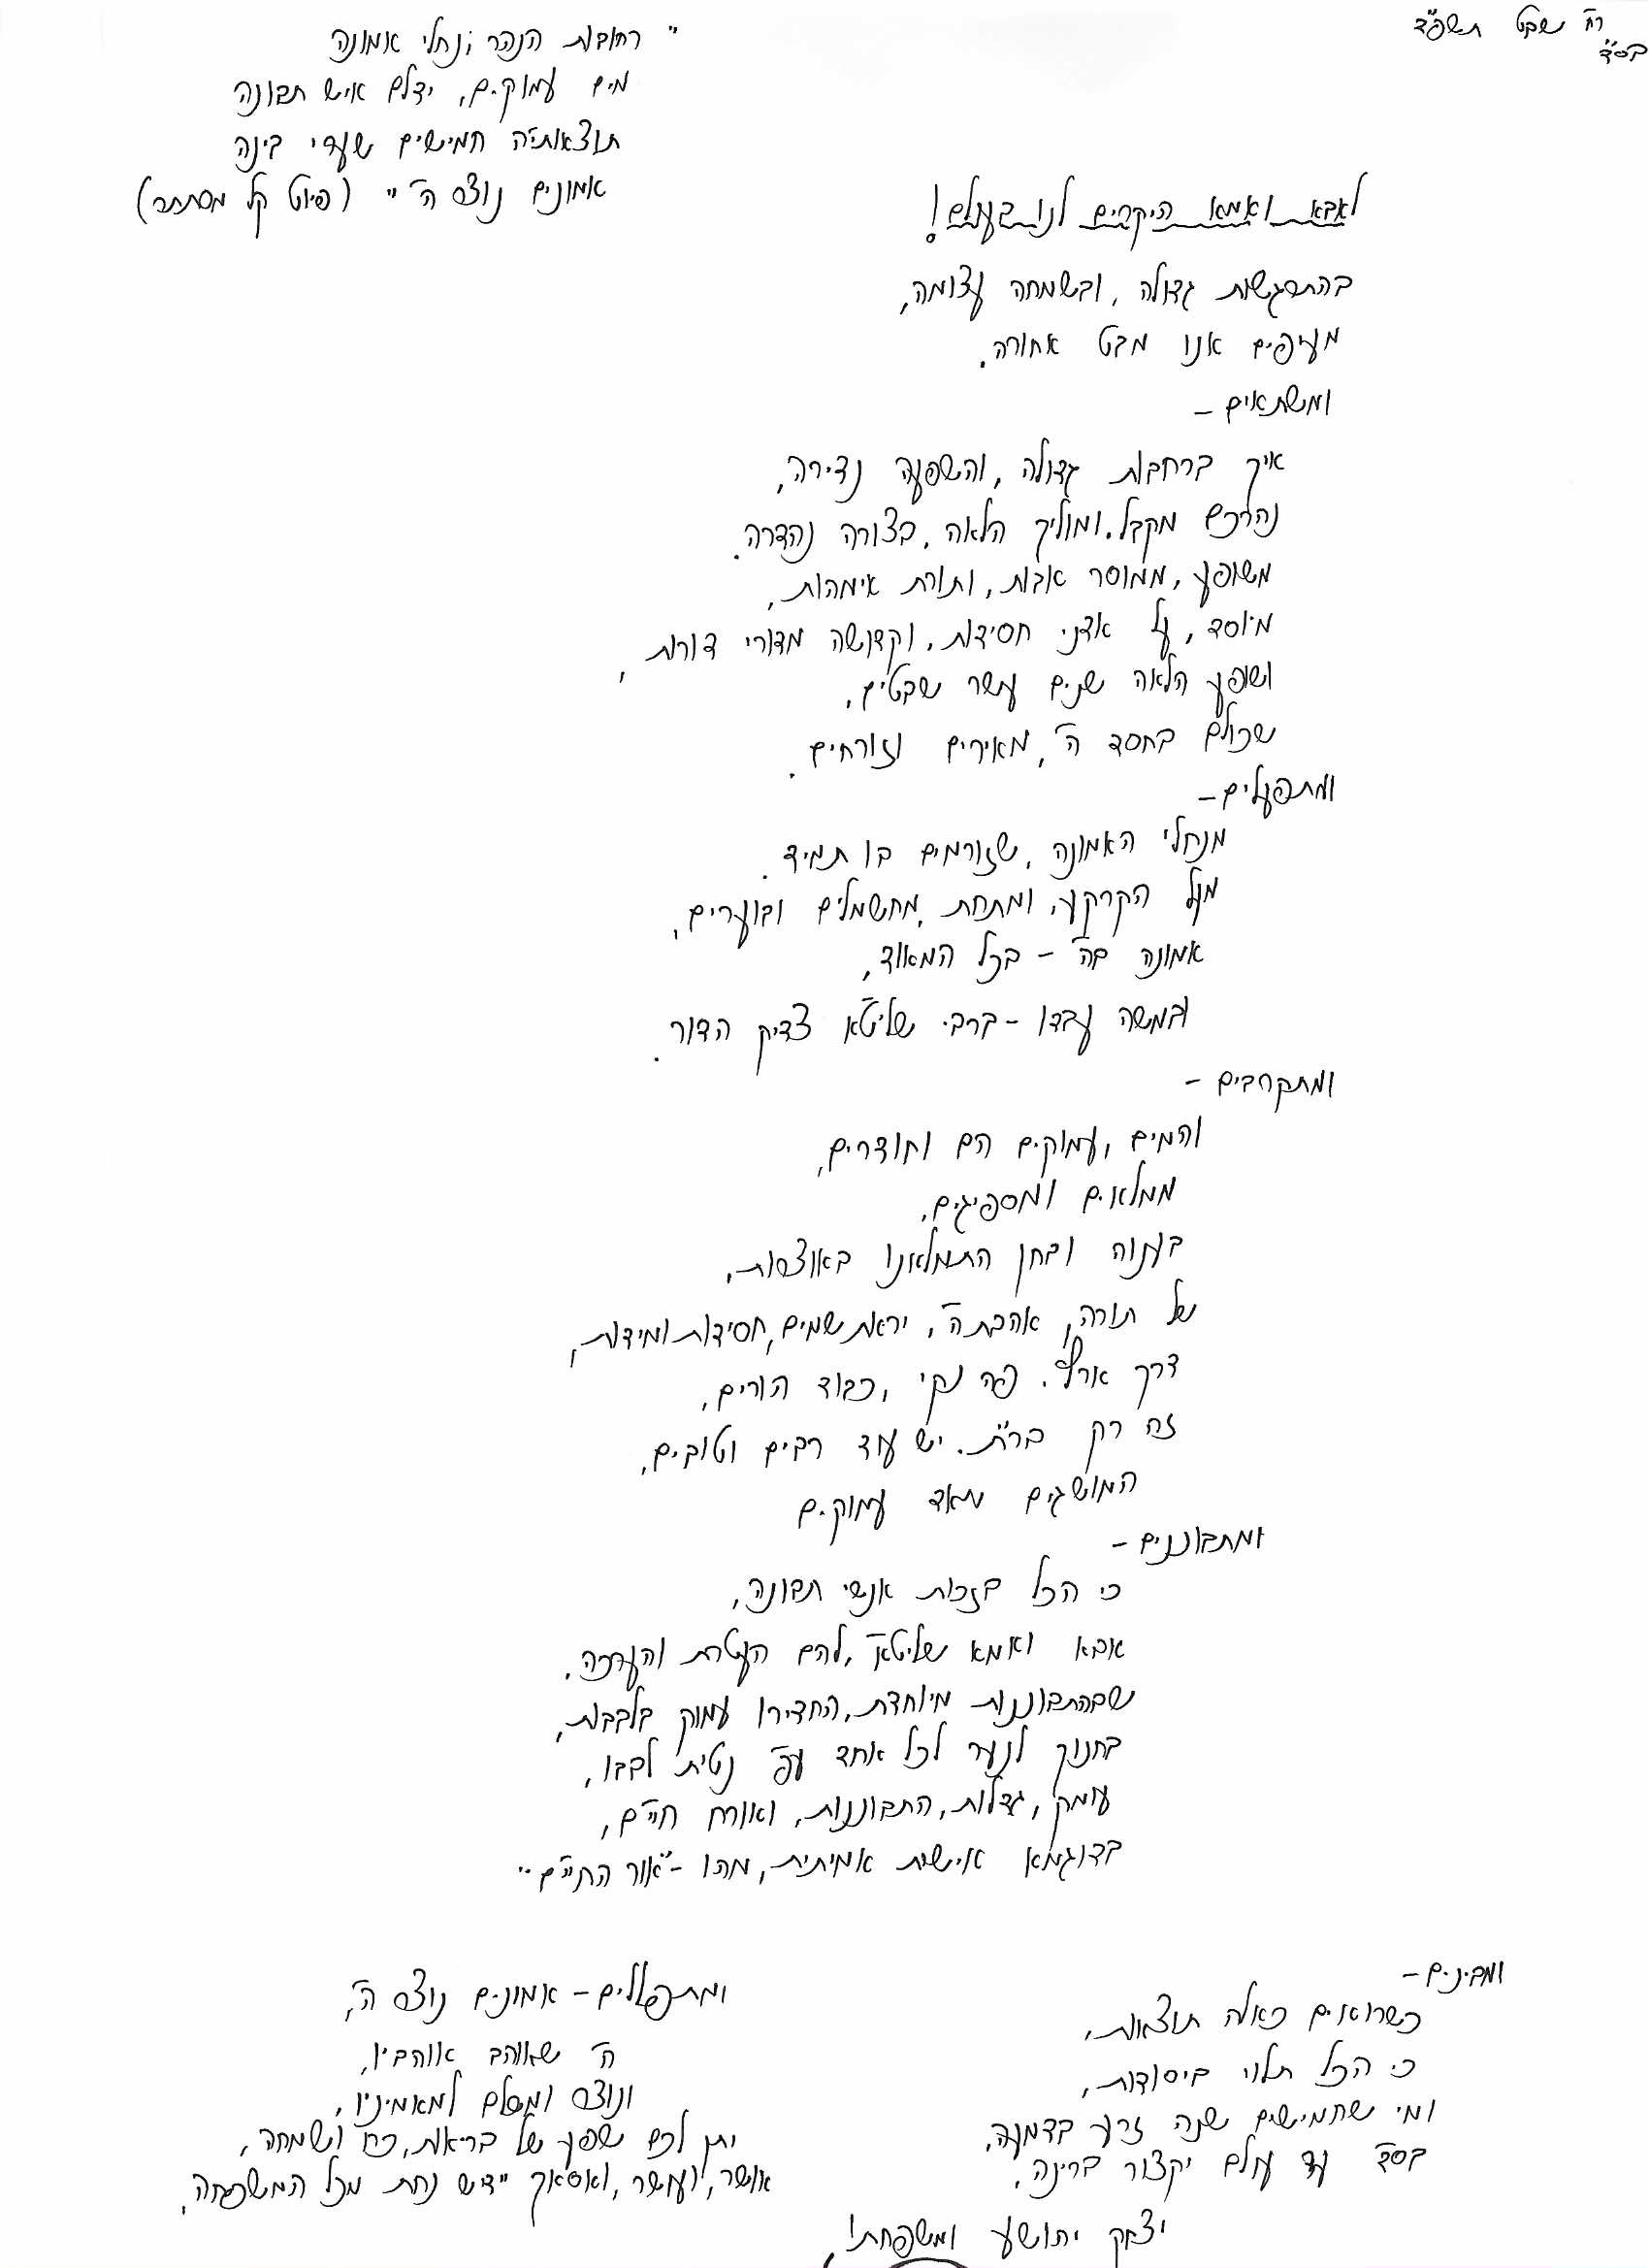 ר״ח שבט תשפ״ד
בס״ד
״רחובות הנהר ; נחלי אמונה
מים עמוקים, ידלם איש תבונה
תוצאותיה חמישים שערי בינה
אמונים נוצר ה׳ ״ (פיוט קל מסתתר)
לאבא ואמא היקרים לנו בעולם!
בהתרגשות גדולה, ובשמחה עצומה,
מעיפים אנו מבט אחורה.
ומשתאים –
איך ברחבות גדולה, והשפעה נדירה,
נהרכם מקבל, ומוליך הלאה, בצורה נהדרה.
משופע, ממוסר אבות, ותורת אימהות,
מיוסד, על אדני חסידות, וקדושה מדורי דורות,
ושופע הלאה שנים עשר שבטים,
שכולם בחסד ה׳, מאירים וזורחים.
ומתפעלים –
מנחלי האמונה, שזורמים בו תמיד.
מעל הקרקע, ומתחת, מחשמלים ובוערים,
אמונה בה׳ – בכל המאוד,
ובמשה עבדו – ברבי שליט״א צדיק הדור.
ומתקרבים –
והמים, עמוקים הם וחודרים,
ממלאים ומספיגים,
בענוה ובחן התמלאנו באוצרות,
של תורה, אהבת ה׳, יראת שמים, חסידות ומידות,
דרך ארץ, פה נקי, כבוד הורים,
זה רק בר״ת. יש עוד רבים וטובים,
המושגים מאד עמוקים
ומתבוננים –
כי הכל בזכות אנשי תבונה,
אבא ואמא שליט״א, להם העטרת והערכה.
שבהתבוננות מיוחדת, החדירו עמוק בלבבות,
בחנוך לנער לכל אחד עפ״י נטית לבבו,
עומק, גדלות, התבוננות, ואורח חיים,
בדוגמא אישית אמיתית, מהו – ״אור החיים״
ומבינים –
כשרואים כאלה תוצאות,
כי הכל תלוי ביסודות,
ומי שחמישים שנה זרע בדמעה,
בס״ד עד עולם יקצור ברינה,
ומתפללים – אמונים נוצר ה׳,
ה׳ שאוהב אוהביו,
ונוצר ומשלם למאמיניו,
יתן לכם שפע של בריאות, כח ושמחה,
אושר, ועושר, ואסאך יידיש נחת מכל המשפחה,
יצחק יהושע ומשפחתי!